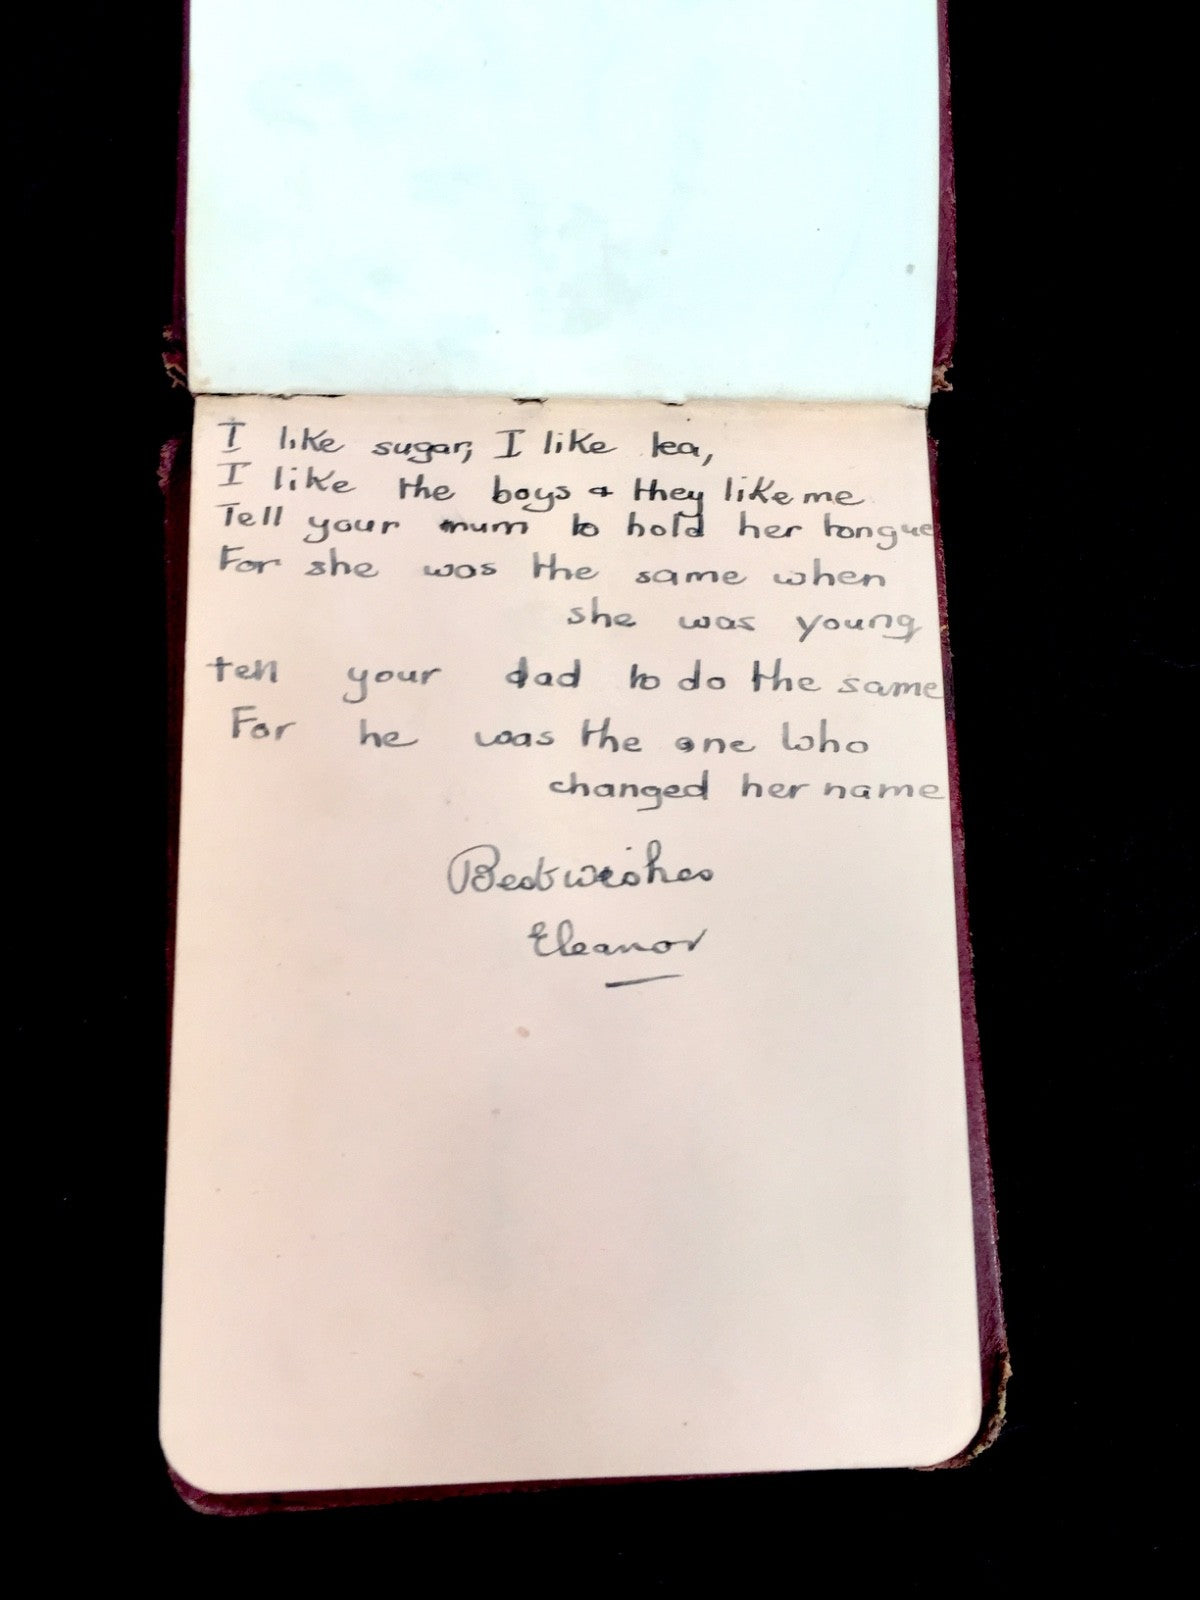 I like sugar, I like tea,
I like the boys & they like me
Tell your mum to hold her tongue
For she was the same when
she was young
tell your dad to do the same
For he was the one who
changed her name
Best wishes
Eleanor